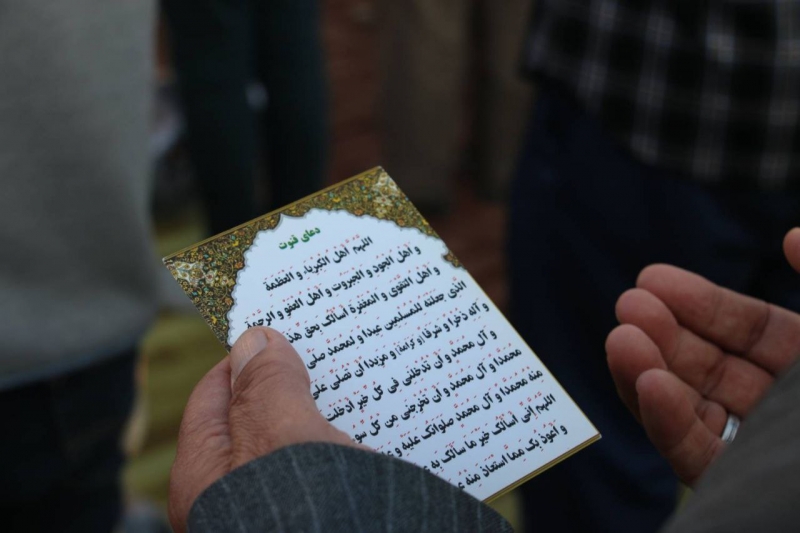 دعای قنوت
اللهم أهل الکبریاء و العظمة
و أهل الجود و الجبروت و أهل العفو و الرحمة
و أهل التقوی و المغفرة أسألک بحق هذا
الذی جعلته للمسلمین عیدا و لمحمد صلی
و آله ذخرا و شرفا (و کرامة) و مزیدا أن تصلی علی
و آل محمد و أن تدخلنی فی کل خیر أدخلت
محمدا و آل محمد و أن تخرجنی من کل سوء
منه محمدا و آل محمد صلواتک علیه و
اللهم إنی أسألک خیر ما سألک به
و أعوذ بک مما استعاذ منه